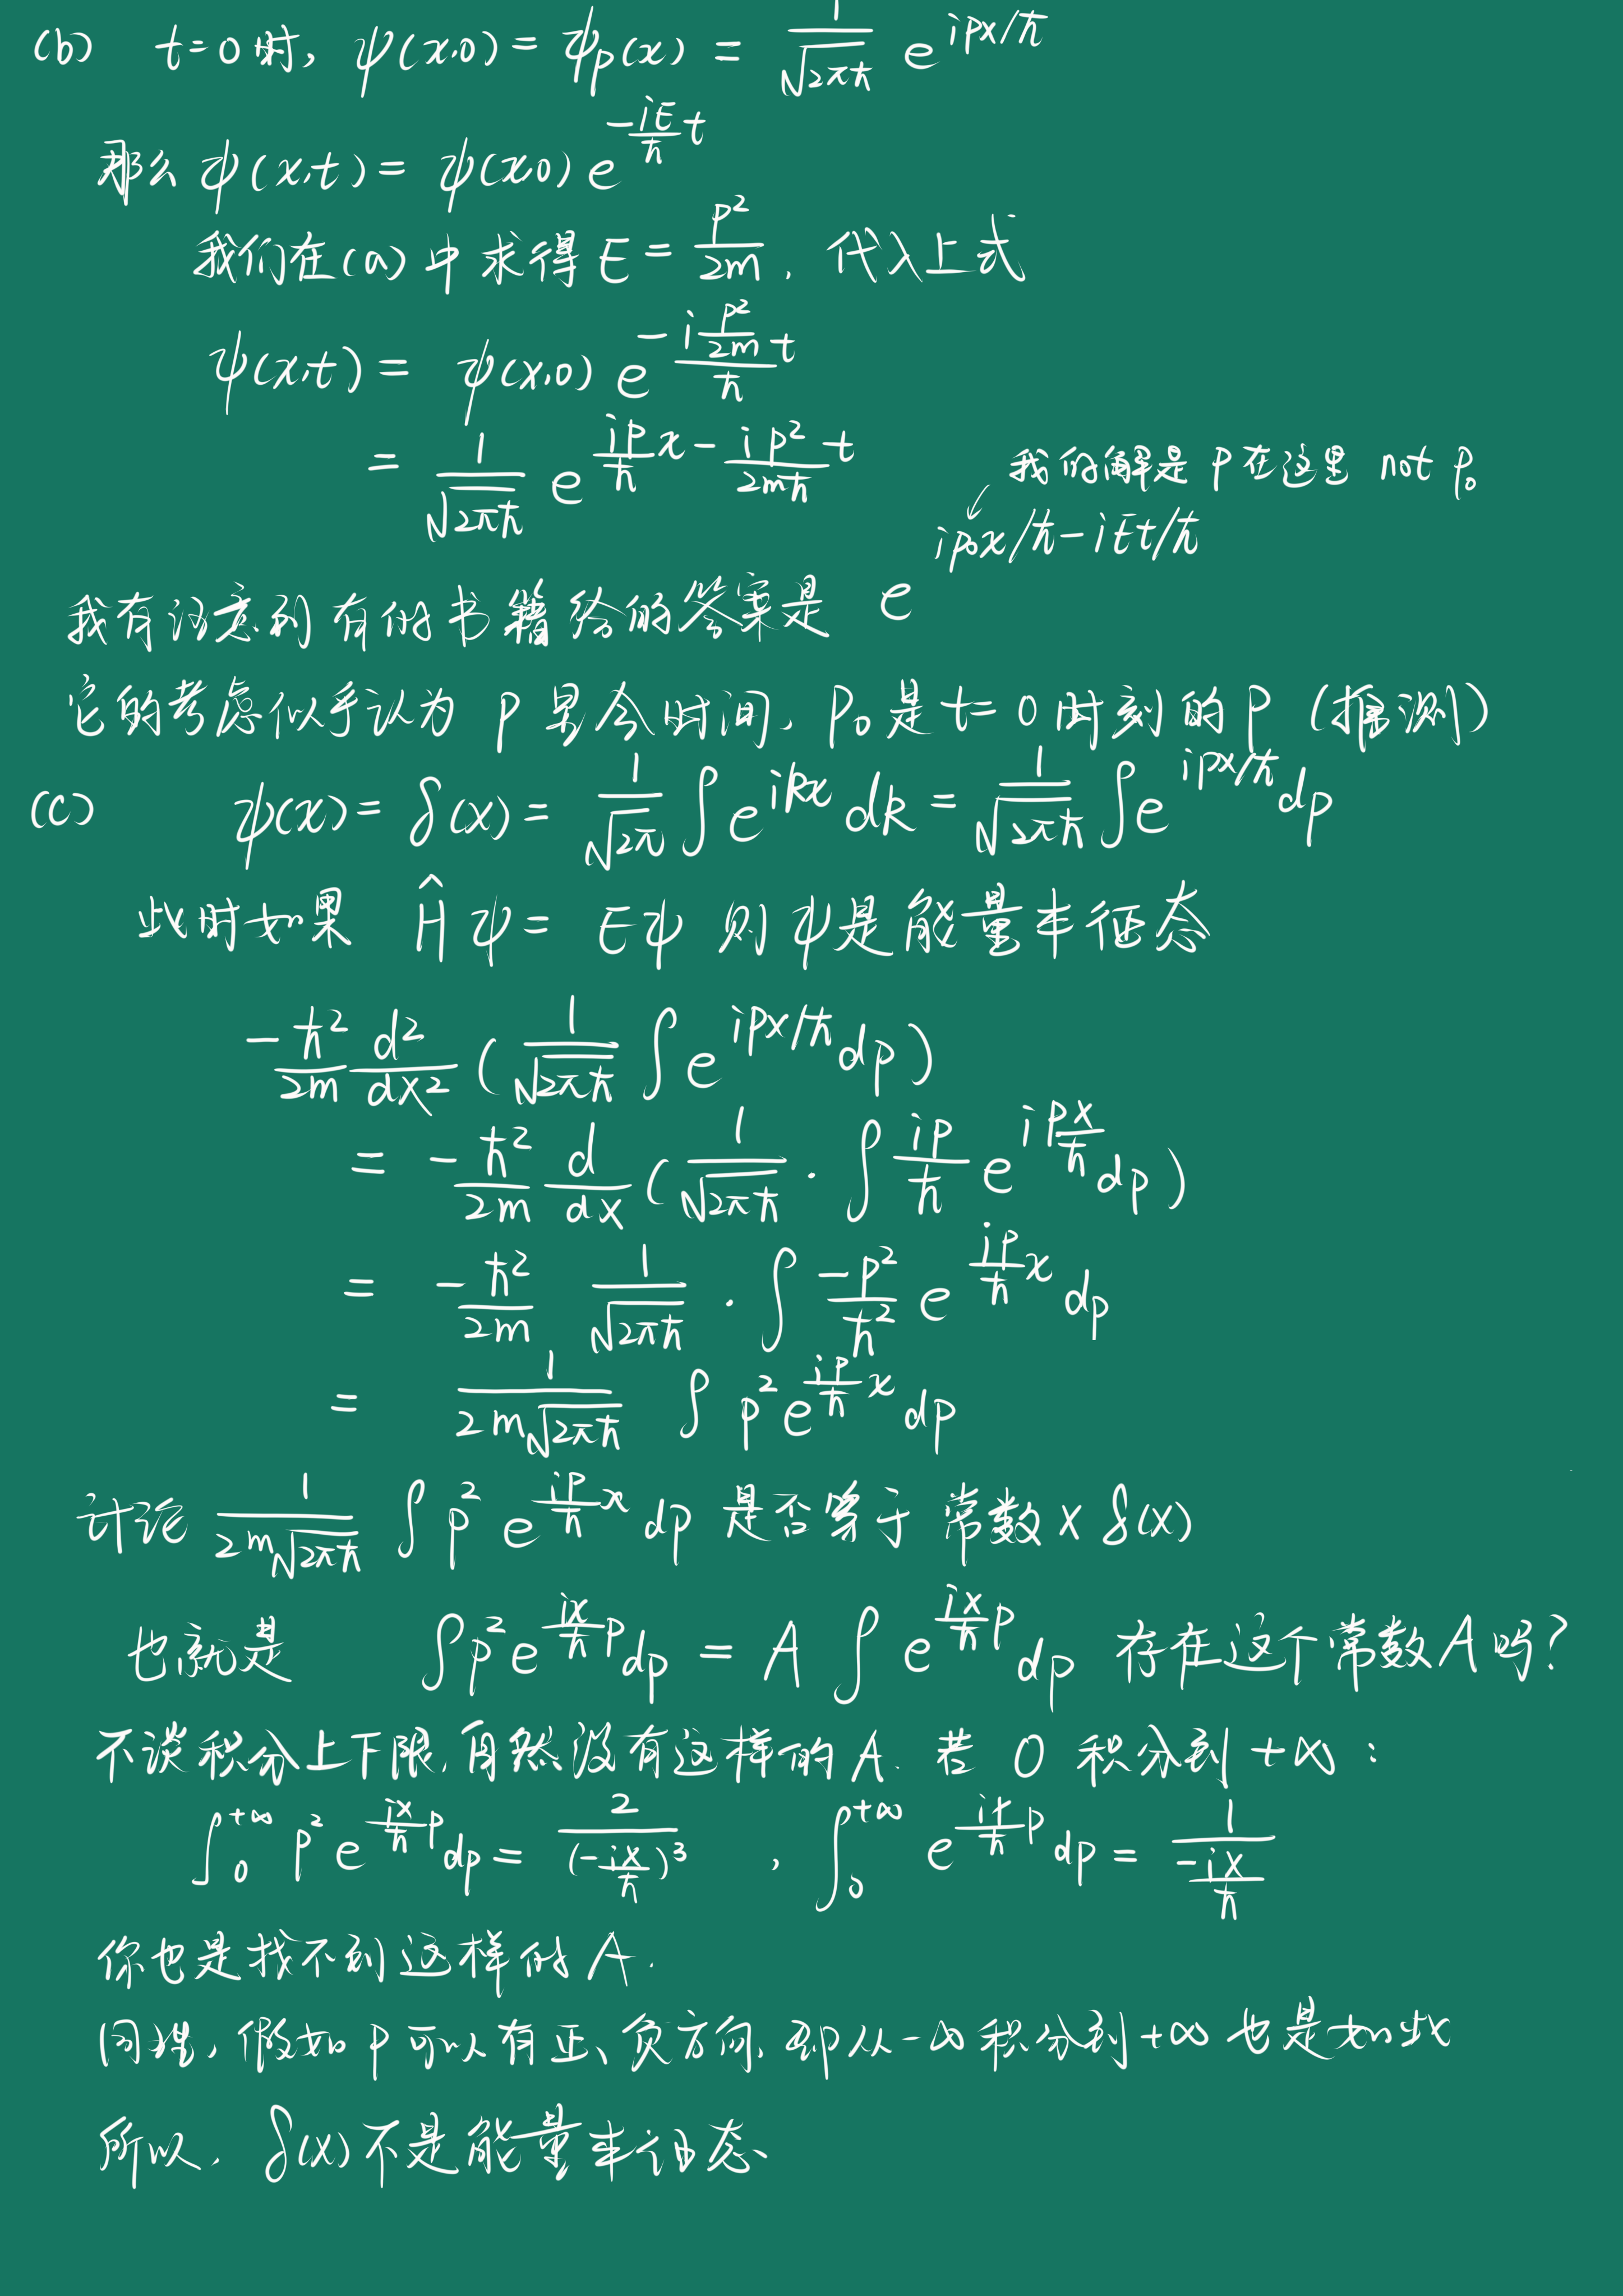 (b) t=0时, ψ(x,0) = ψp(x) = 1/√(2πħ) e^{ipx/ħ}
那么 ψ(x,t) = ψ(x,0) e^{-iE/ħ t}
我们在(a)中求得 E = p²/2m, 代入上式
ψ(x,t) = ψ(x,0) e^{-i(p²/2m)/ħ t}
= 1/√(2πħ) e^{ip/ħ x - ip²/2mħ t}
我的解是 p在这里 not p₀
我有注意到有的书籍给的答案是 e^{ip₀x/ħ - iEt/ħ}
它的考虑似乎认为 p是含时间, p₀是t=0时刻的p (推测)
(c) ψ(x) = δ(x) = 1/√(2π) ∫e^{ikx} dk = 1/√(2πħ) ∫e^{ipx/ħ} dp
此时如果 Ĥψ = Eψ 则ψ是能量本征态
-ħ²/2m d²/dx² (1/√(2πħ) ∫e^{ipx/ħ} dp)
= -ħ²/2m d/dx (1/√(2πħ) · ∫ ip/ħ e^{ip x/ħ} dp)
= -ħ²/2m 1/√(2πħ) · ∫ -p²/ħ² e^{ip/ħ x} dp
= 1/(2m√(2πħ)) ∫ p² e^{ip/ħ x} dp
讨论 1/(2m√(2πħ)) ∫ p² e^{ip/ħ x} dp 是否等于 常数×δ(x)
也就是 ∫p² e^{ix/ħ p} dp = A ∫ e^{ix/ħ p} dp 存在这个常数A吗?
不谈积分上下限,自然没有这样的A. 若 0 积分到 +∞:
∫₀^{+∞} p² e^{ix/ħ p} dp = 2/(-ix/ħ)³ , ∫₀^{+∞} e^{ix/ħ p} dp = 1/(-ix/ħ)
你也是找不到这样的A.
同理, 假如p可以有正、负方向, 即从-∞积分到+∞也是如此
所以, δ(x)不是能量本征态、